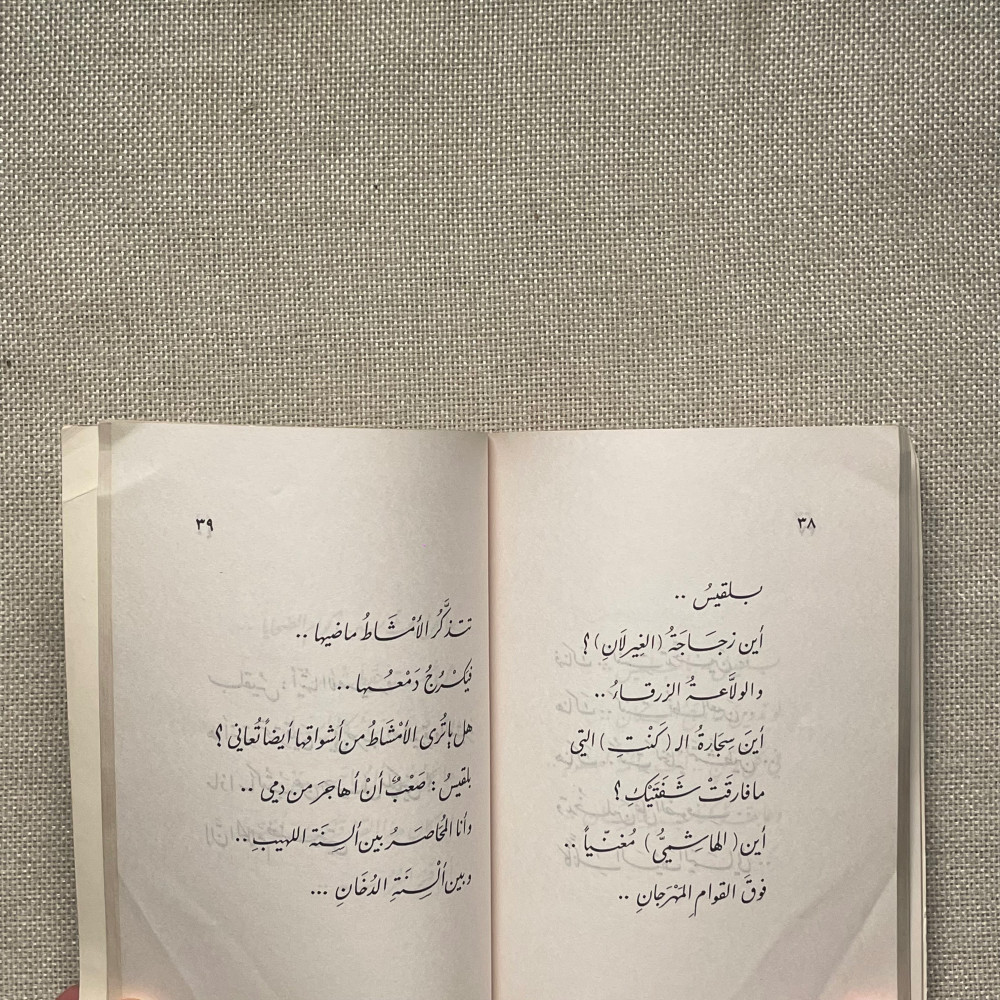 ٣٨
بلقيسُ ..
أين زجَاجَةُ (الغِيرلَانِ) ؟
والولَّاعةُ الزرقاءُ ..
أينَ سِجَارةُ الـ (كَنْتِ) التي
مافارقَتْ شَفَتَيْكِ ؟
أين (الهاشميُّ) مُغنّياً ..
فوقَ القوامِ المَهْرَجانِ ..
٣٩
تتذكَّرُ الأمْشَاطُ ماضيها ..
فيَكْرُجُ دَمْعُها ..
هل ياتُرى الأمْشَاطُ من أشواقها أيضاً تُعاني ؟
بلقيسُ : صَعْبٌ أنْ أهاجرَ من دمي ..
وأنا المُحَاصَرُ بين ألسِنَةِ اللهيبِ ..
وبين ألْسِنَةِ الدُخَانِ ...